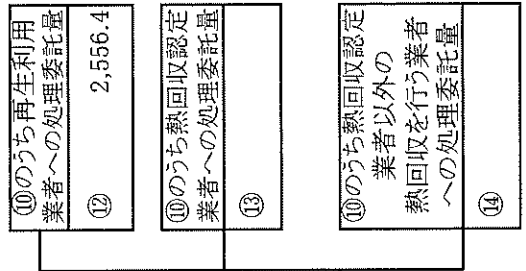 ⑩のうち再生利用
業者への処理委託量
⑫ 2,556.4
⑩のうち熱回収認定
業者への処理委託量
⑬
⑩のうち熱回収認定
業者以外の
熱回収を行う業者
への処理委託量
⑭